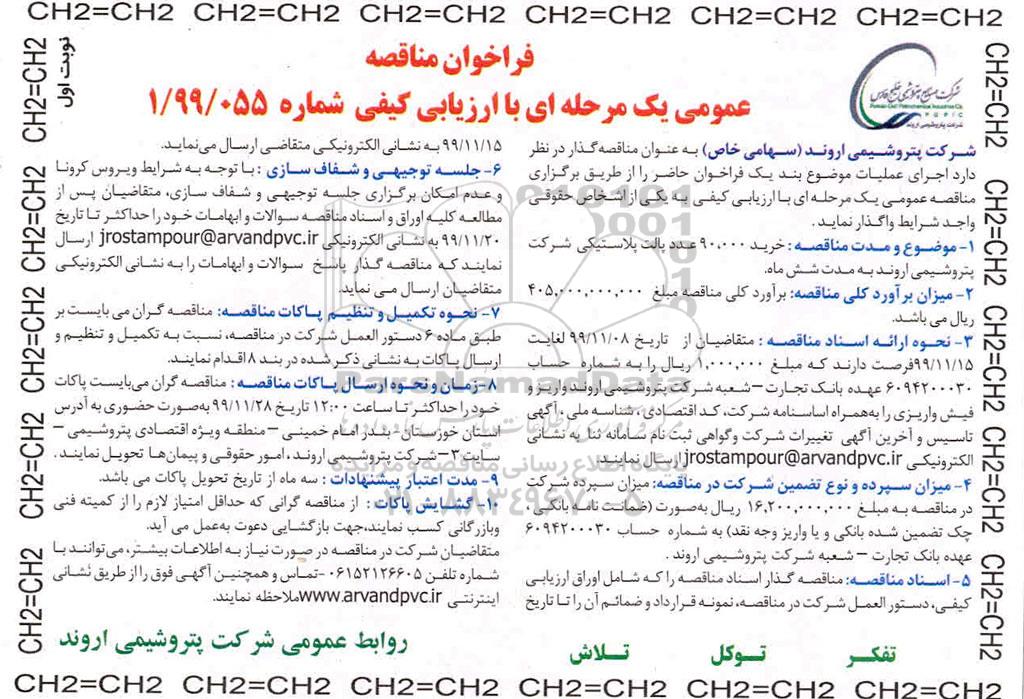 CH2=CH2 CH2=CH2 CH2=CH2 CH2=CH2 CH2=CH2 CH2=CH2
نوبت اول
فراخوان مناقصه
عمومی یک مرحله ای با ارزیابی کیفی شماره ۱/۹۹/۰۵۵
شرکت صنایع پتروشیمی خلیج فارس
Persian Gulf Petrochemical Industries Co.
P G P I C
شرکت پتروشیمی اروند
شرکت پتروشیمی اروند (سهامی خاص) به عنوان مناقصه‌گذار در نظر
دارد اجرای عملیات موضوع بند یک فراخوان حاضر را از طریق برگزاری
مناقصه عمومی یک مرحله ای با ارزیابی کیفی به یکی از اشخاص حقوقی
واجد شرایط واگذار نماید.
۱- موضوع و مدت مناقصه: خرید ۹۰،۰۰۰ عدد پالت پلاستیکی شرکت
پتروشیمی اروند به مدت شش ماه.
۲- میزان برآورد کلی مناقصه: برآورد کلی مناقصه مبلغ ۴۰۵،۰۰۰،۰۰۰،۰۰۰
ریال می باشد.
۳- نحوه ارائه اسناد مناقصه: متقاضیان از تاریخ ۹۹/۱۱/۰۸ لغایت
۹۹/۱۱/۱۵فرصت دارند که مبلغ ۱،۰۰۰،۰۰۰ ریال را به شماره حساب
۶۰۹۴۲۰۰۰۳۰ عهده بانک تجارت – شعبه شرکت پتروشیمی اروند واریز و
فیش واریزی را به‌همراه اساسنامه شرکت، کد اقتصادی، شناسه ملی، آگهی
تاسیس و آخرین آگهی تغییرات شرکت وگواهی ثبت نام سامانه ثنا به نشانی
الکترونیکی jrostampour@arvandpvc.ir ارسال نمایند.
۴- میزان سپرده و نوع تضمین شرکت در مناقصه: میزان سپرده شرکت
در مناقصه به مبلغ ۱۶،۲۰۰،۰۰۰،۰۰۰ ریال به‌صورت (ضمانت نامه بانکی،
چک تضمین شده بانکی و یا واریز وجه نقد) به شماره حساب ۶۰۹۴۲۰۰۰۳۰
عهده بانک تجارت – شعبه شرکت پتروشیمی اروند.
۵- اسناد مناقصه: مناقصه گذار اسناد مناقصه را که شامل اوراق ارزیابی
کیفی، دستور العمل شرکت در مناقصه، نمونه قرارداد و ضمائم آن را تا تاریخ
۹۹/۱۱/۱۵ به نشانی الکترونیکی متقاضی ارسال می‌نماید.
۶- جلسه توجیهی و شفاف سازی: با توجه به شرایط ویروس کرونا
و عدم امکان برگزاری جلسه توجیهی و شفاف سازی، متقاضیان پس از
مطالعه کلیه اوراق و اسناد مناقصه سوالات و ابهامات خود را حداکثر تا تاریخ
۹۹/۱۱/۲۰ به نشانی الکترونیکی jrostampour@arvandpvc.ir ارسال
نمایند که مناقصه گذار پاسخ سوالات و ابهامات را به نشانی الکترونیکی
متقاضیان ارسال می نماید.
۷- نحوه تکمیل و تنظیم پاکات مناقصه: مناقصه گران می بایست بر
طبق ماده ۶ دستور العمل شرکت در مناقصه، نسبت به تکمیل و تنظیم و
ارسال پاکات به نشانی ذکر شده در بند ۸ اقدام نمایند.
۸- زمان و نحوه ارسال پاکات مناقصه: مناقصه گران می‌بایست پاکات
خود را حداکثر تا ساعت ۱۲:۰۰ تاریخ ۹۹/۱۱/۲۸ به‌صورت حضوری به آدرس
استان خوزستان- بندر امام خمینی – منطقه ویژه اقتصادی پتروشیمی –
سایت ۳ – شرکت پتروشیمی اروند، امور حقوقی و پیمان‌ها تحویل نمایند.
۹- مدت اعتبار پیشنهادات: سه ماه از تاریخ تحویل پاکات می باشد.
۱۰- گشایش پاکات: از مناقصه گرانی که حداقل امتیاز لازم را از کمیته فنی
وبازرگانی کسب نمایند،جهت بازگشایی دعوت به‌عمل می آید.
متقاضیان شرکت در مناقصه در صورت نیاز به اطلاعات بیشتر، می‌توانند با
شماره تلفن ۰۶۱۵۲۱۲۶۶۰۵ -تماس و همچنین آگهی فوق را از طریق نشانی
اینترنتی www.arvandpvc.ir ملاحظه نمایند.
ParsNamadData
پایگاه اطلاع رسانی مناقصه و مزایده
تفکر توکل تلاش
روابط عمومی شرکت پتروشیمی اروند
CH2=CH2 CH2=CH2 CH2=CH2 CH2=CH2 CH2=CH2 CH2=CH2
CH2=CH2 CH2=CH2 CH2=CH2 CH2=CH2 CH2=CH2
CH2=CH2 CH2=CH2 CH2=CH2 CH2=CH2 CH2=CH2